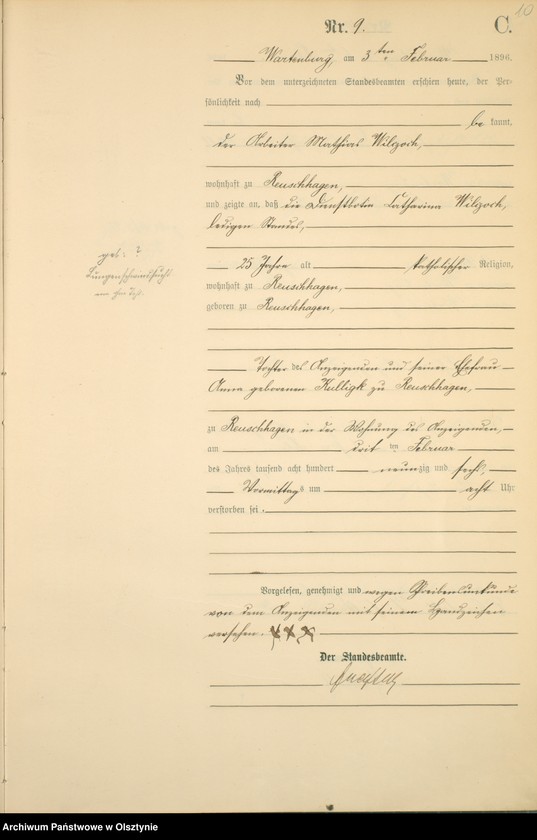 10
Nr. 9.
C.
Wartenburg, am 3ten Februar 1896.
Vor dem unterzeichneten Standesbeamten erschien heute, der Per-
sönlichkeit nach
be kannt,
der Arbeiter Mathias Wilczoch,
wohnhaft zu Reuschhagen,
und zeigte an, daß die Dienstbotin Catharina Wilczoch,
ledigen Standes,
25 Jahre alt katholischer Religion,
wohnhaft zu Reuschhagen,
geboren zu Reuschhagen,
gest: ?
Lungenschwindsucht
Tochter des Anzeigenden und seiner Ehefrau
Anna geborenen Kulligk zu Reuschhagen,
zu Reuschhagen in der Wohnung des Anzeigenden,
am dritten Februar
des Jahres tausend acht hundert neunzig und sechs,
Vormittags um acht Uhr
verstorben sei.
Vorgelesen, genehmigt und wegen Schreibensunkunde
von dem Anzeigenden mit seinem Handzeichen
versehen. XXX
Der Standesbeamte.
Archiwum Państwowe w Olsztynie